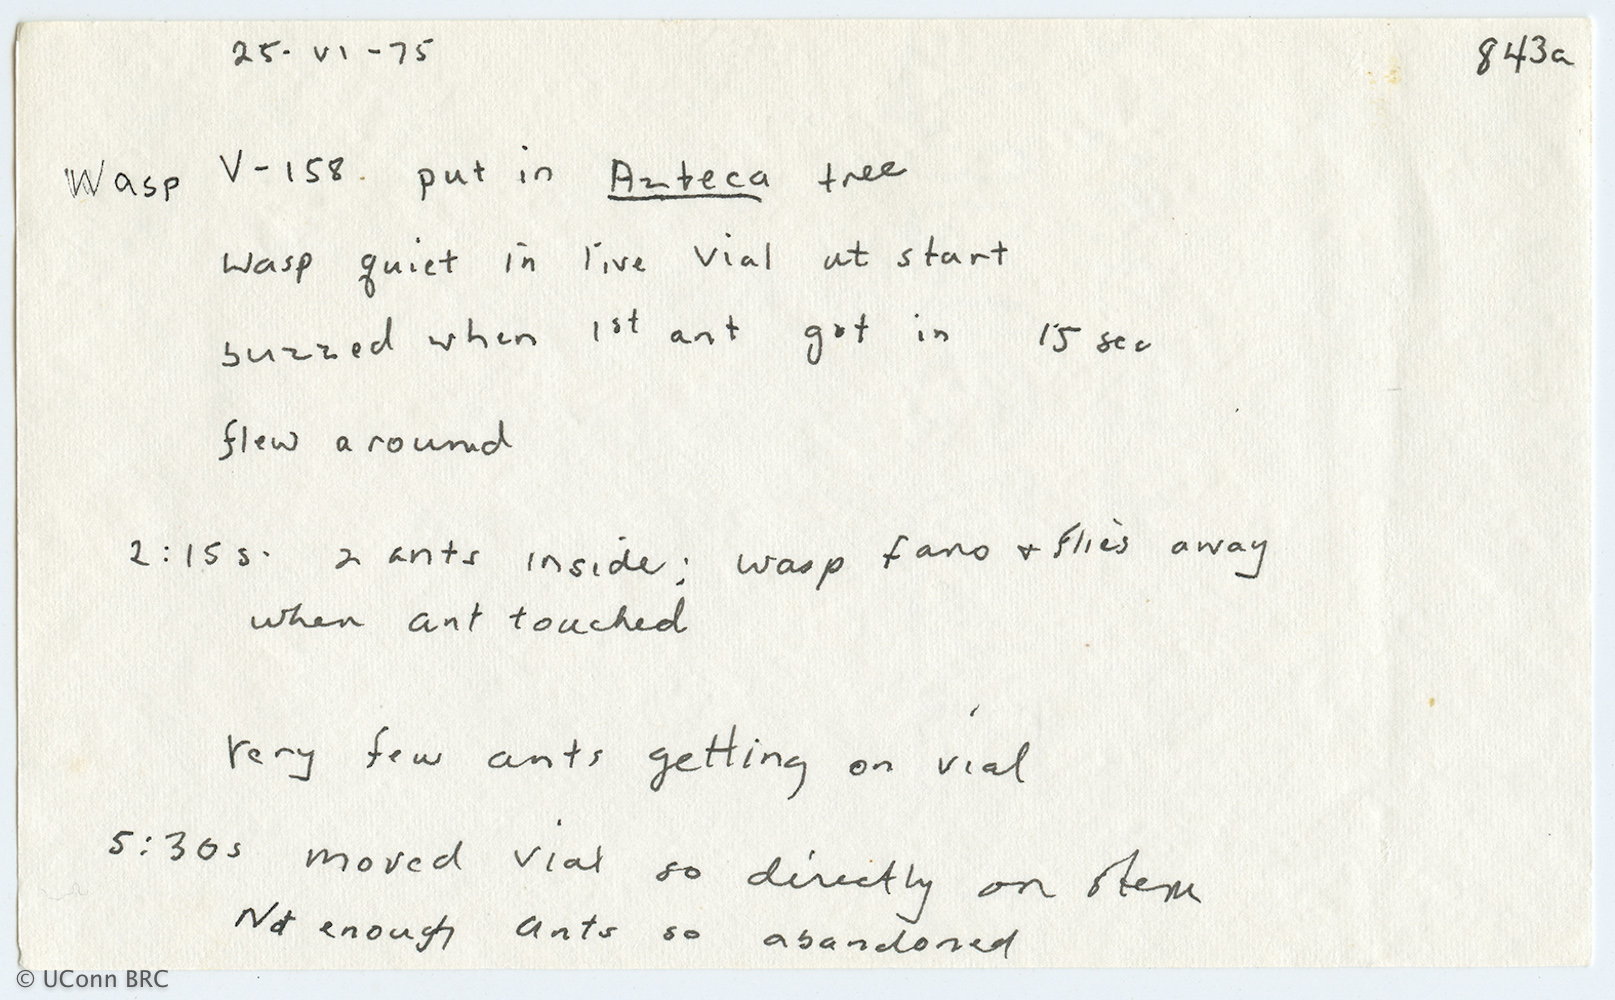 25-VI-75 843a
Wasp V-158. put in Azteca tree
wasp quiet in live vial at start
buzzed when 1st ant got in 15 sec
flew around
2:15s. 2 ants inside; wasp fans + flies away
when ant touched
Very few ants getting on vial
5:30s moved vial so directly on stem
Not enough ants so abandoned
© UConn BRC